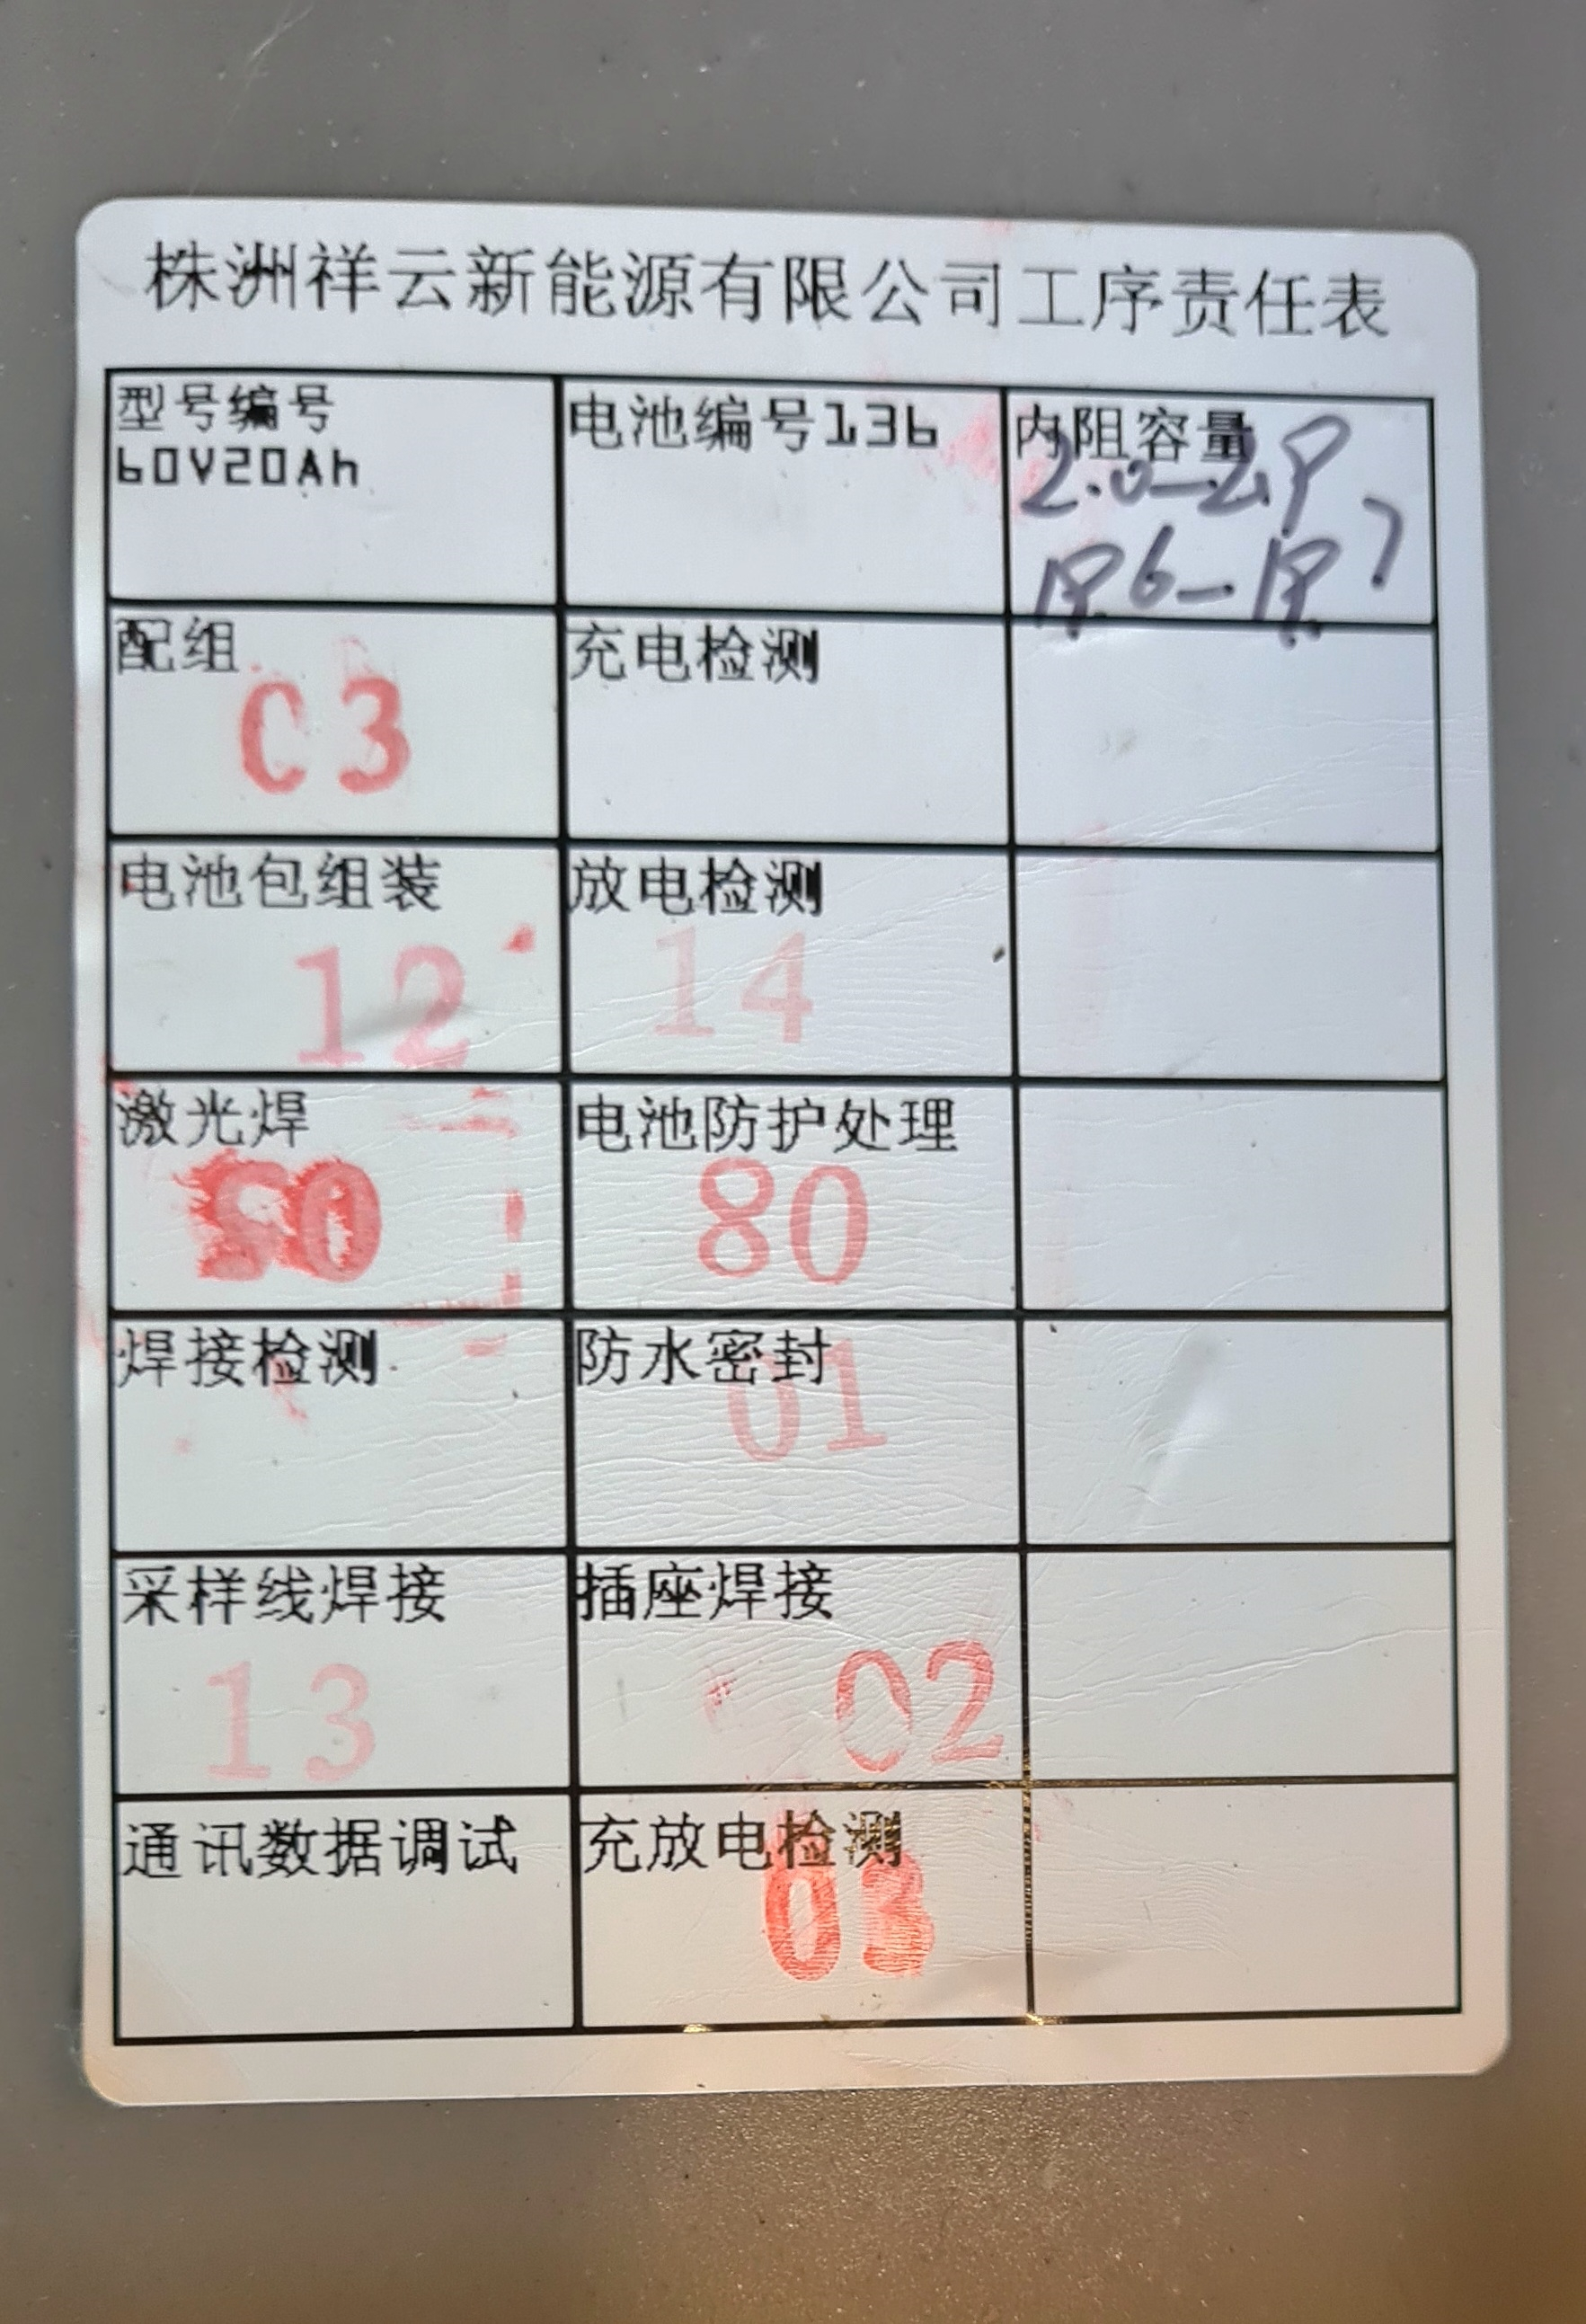 株洲祥云新能源有限公司工序责任表
型号编号
60V20Ah
电池编号136
内阻容量
2.0-2.9
配组
C3
充电检测
电池包组装
12
放电检测
14
激光焊
电池防护处理
80
焊接检测
防水密封
01
采样线焊接
13
插座焊接
02
通讯数据调试
充放电检测
03